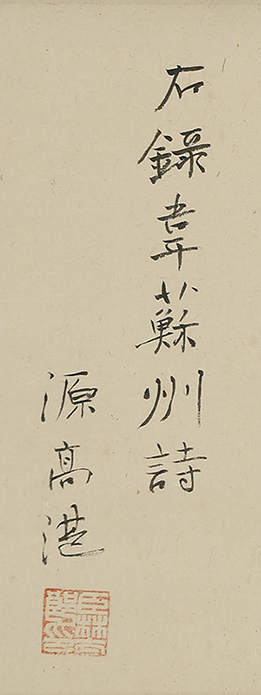 右錄韋蘇州詩
源高湛